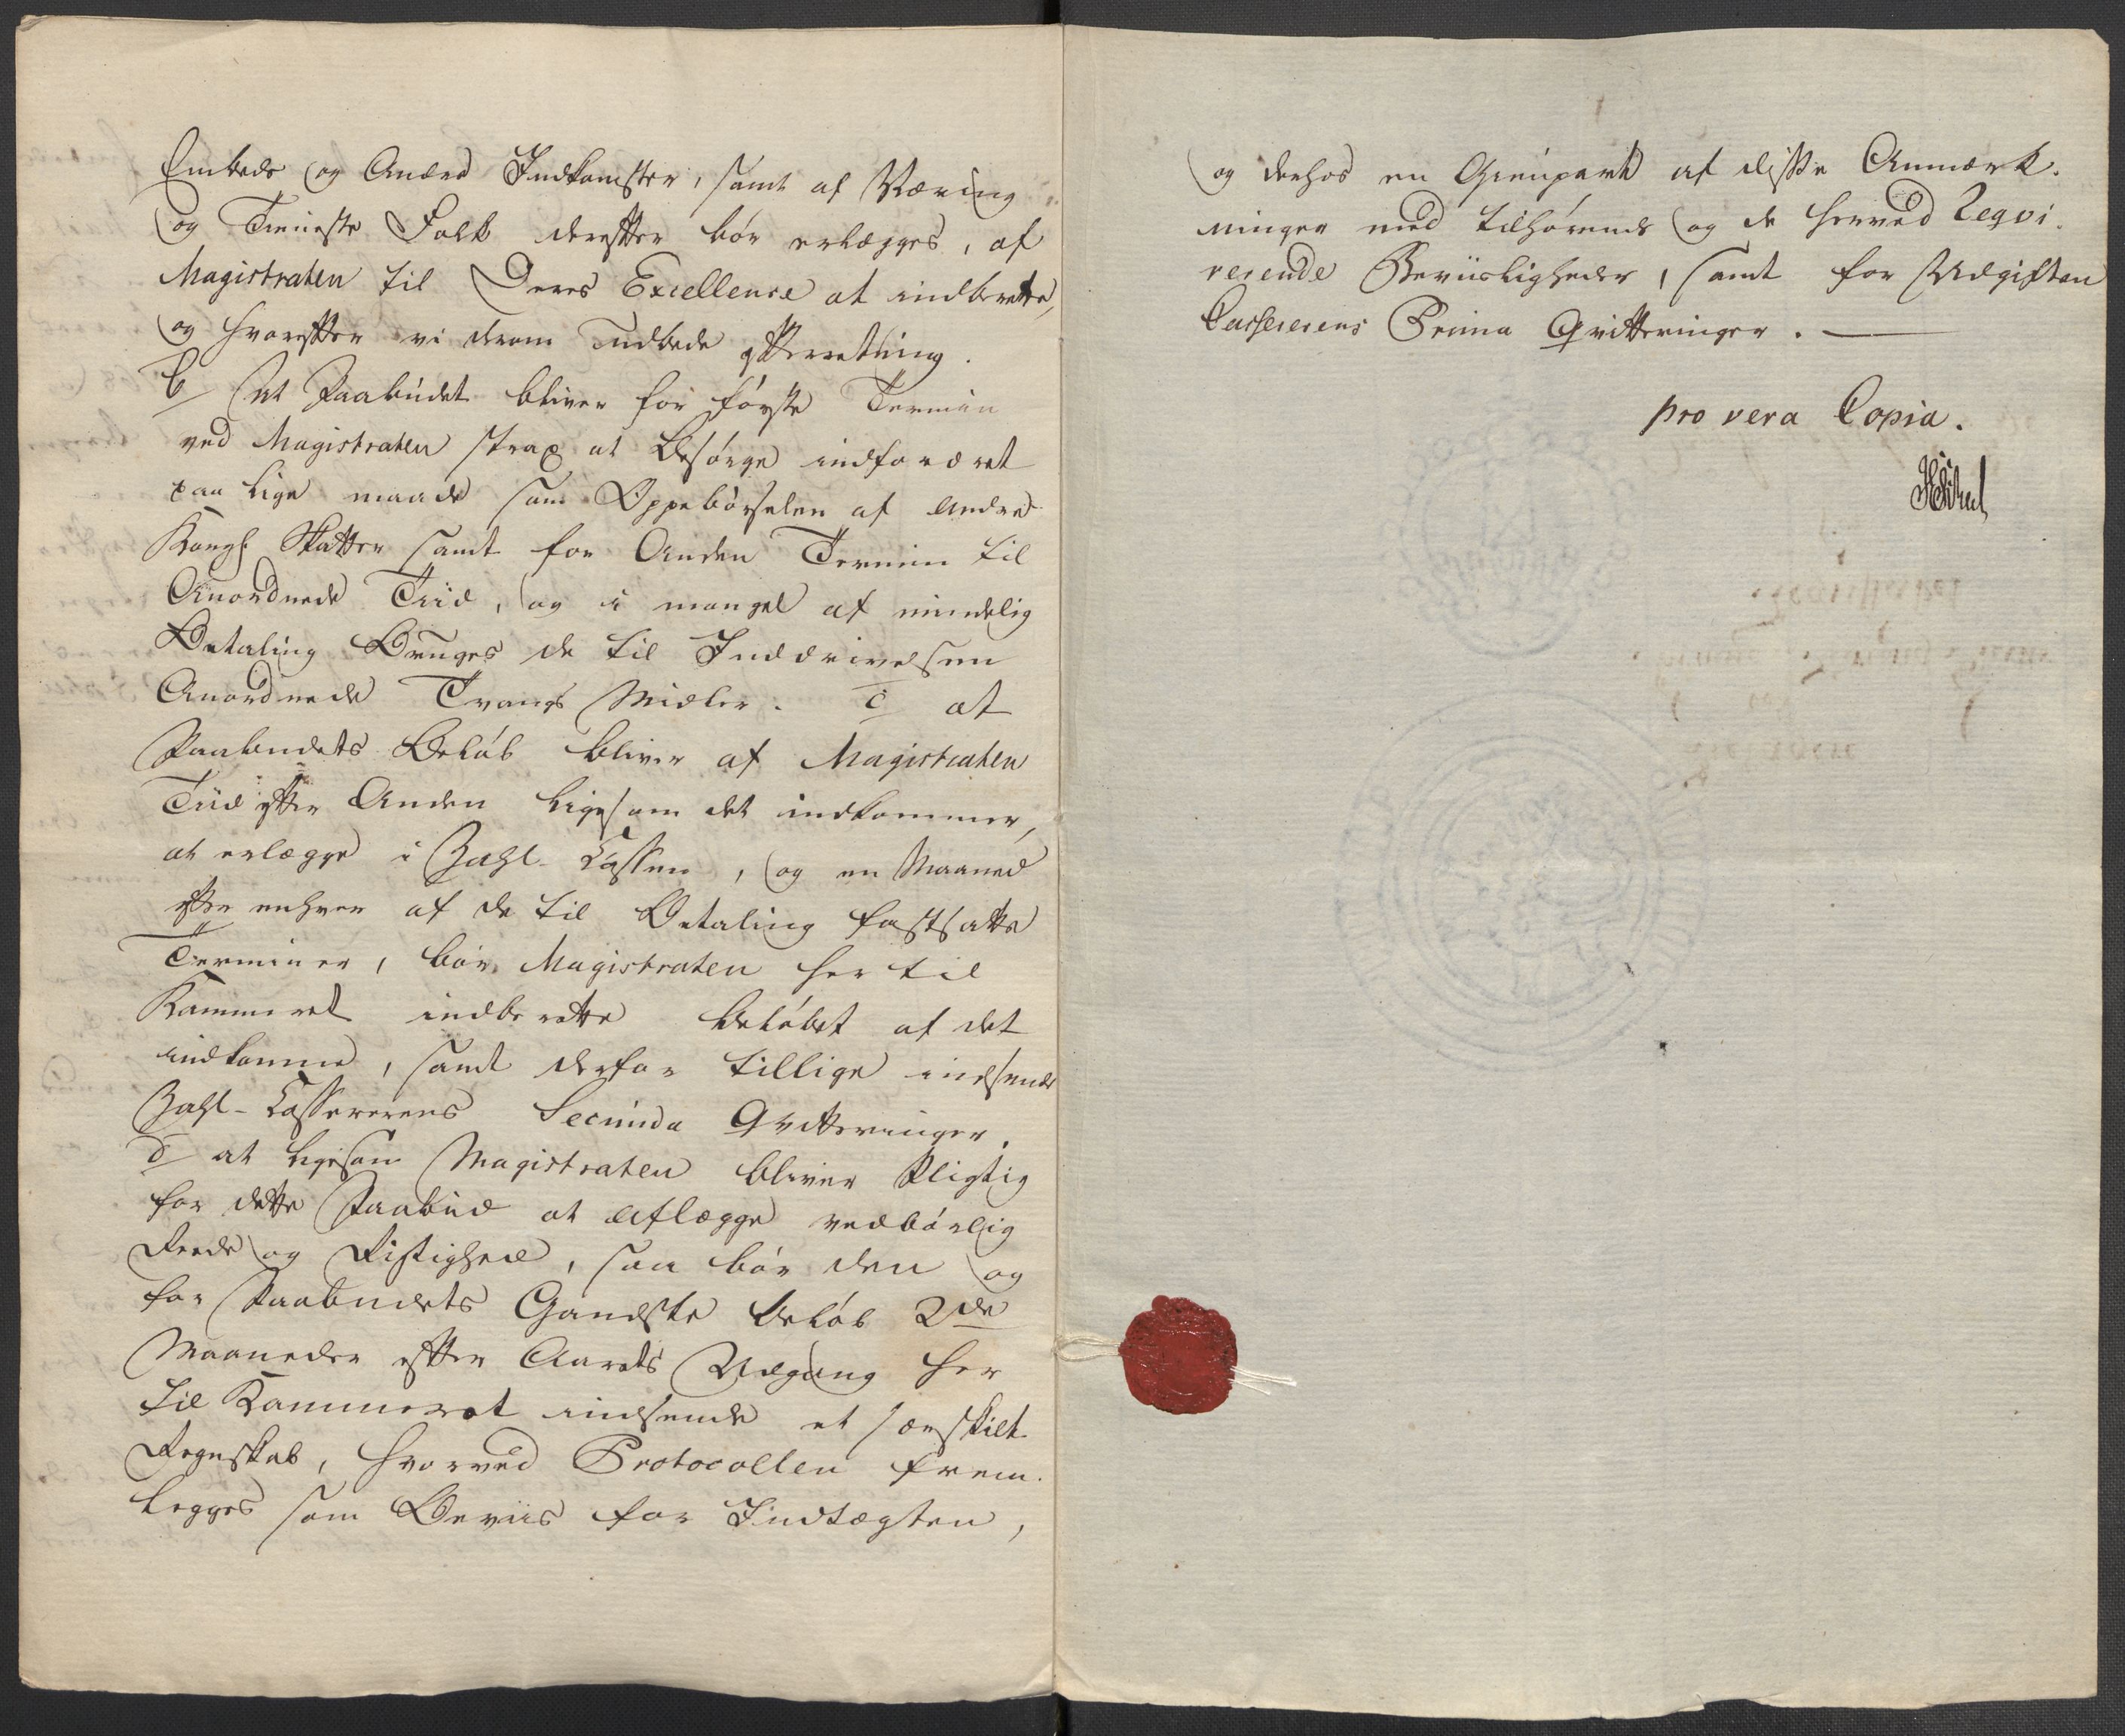 Embeds og Andre Indkomster, samt af Næring
og Tieneste Folk derefter bör erlægges, af
Magistraten til Deres Excellence at indberette,
og hvorefter vi derom udbede efterretning.
b/ At Paabudet bliver for förste Termin
ved Magistraten strax at besörge indfordret
paa lige maade som Oppebörselen af andre
Kongl. Skatter samt for Anden Termin til
Anordnede Tiid, og i mangel af mindelig
Betaling Bruges de til Inddrivelsen
Anordnede Tvangs Midler. c/ at
Paabudets Belöb bliver af Magistraten
Tiid efter Anden ligesom det indkommer,
at erlægge i Zahl-Cassen, og en Maaned
efter enhver af de til Betaling fastsatte
Terminer, bör Magistraten her til
Kammeret indberette Belöbet af det
indkomne, samt derfor tillige indsende
Zahl-Cassererens Secunda Qvitteringer.
d/ at ligesom Magistraten bliver Pligtig
for dette Paabud at aflægge vedbörlig
Reede og Rigtighed, saa bör den og
for Paabudets Gandske Belöb 2de
Maaneder efter Aarets Udgang her
til Kammeret indsende et særskilt
Regnskab, hvorved Protocollen frem-
legges som Beviis for Indtægten,
og derhos en Gienpart af disse Anmærk-
ninger med tilhörende og de herved Reqvi-
rerende Beviisligheder, samt for Udgiften
Cassererens Prima Qvitteringer.
pro vera Copia.